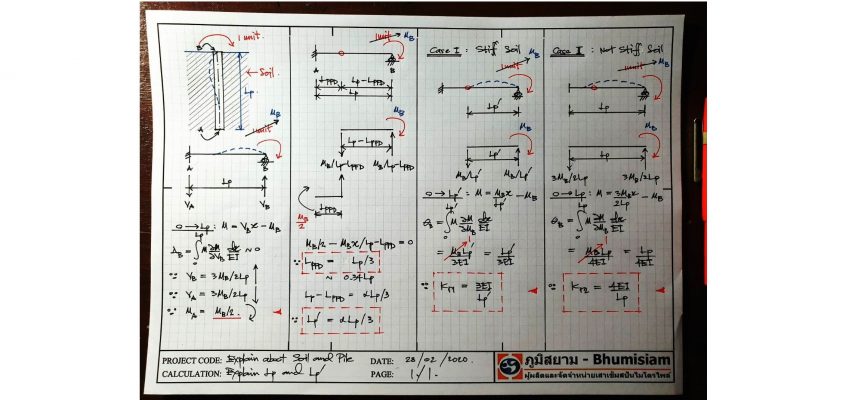 B
1 unit
← Soil
Lp
A
M_B
1 unit
A
B
Lp
V_A
V_B
0 → Lp : M = V_B x - M_B
Δ_B = ∫ M ∂M/∂V_B dx/EI ≈ 0
∵ V_B = 3M_B/2Lp
∵ V_A = 3M_B/2Lp
∵ M_A = M_B/2
1 unit
M_B
A
B
L_PFD
Lp-L_PFD
Lp
M_B
Lp-L_PFD
M_B/Lp-L_PFD
M_B/Lp-L_PFD
M_B/2
L_PFD
M_B/2 - M_B x/Lp-L_PFD = 0
∵ L_PFD = Lp/3
≈ 0.34Lp
Lp-L_PFD = 2Lp/3
∵ Lp' = 2Lp/3
Case I : Stiff Soil
1 unit
M_B
Lp'
M_B
Lp'
M_B/Lp'
M_B/Lp'
0 → Lp' : M = M_B x/Lp' - M_B
θ_B = ∫ M ∂M/∂M_B dx/EI
= M_B Lp'/3EI = Lp'/3EI
1
∵ K_r1 = 3EI/Lp'
Case II : Not Stiff Soil
1 unit
M_B
Lp
M_B
Lp
3M_B/2Lp
3M_B/2Lp
0 → Lp : M = 3M_B x/2Lp - M_B
θ_B = ∫ M ∂M/∂M_B dx/EI
= M_B Lp/4EI = Lp/4EI
1
∵ K_r2 = 4EI/Lp
PROJECT CODE: Explain about Soil and Pile
DATE: 28/02/2020.
CALCULATION: Explain Lp and Lp'
PAGE: 1/1.
ภูมิสยาม - Bhumisiam
ผู้ผลิตและจัดจำหน่ายเสาเข็มสปันไมโครไพล์